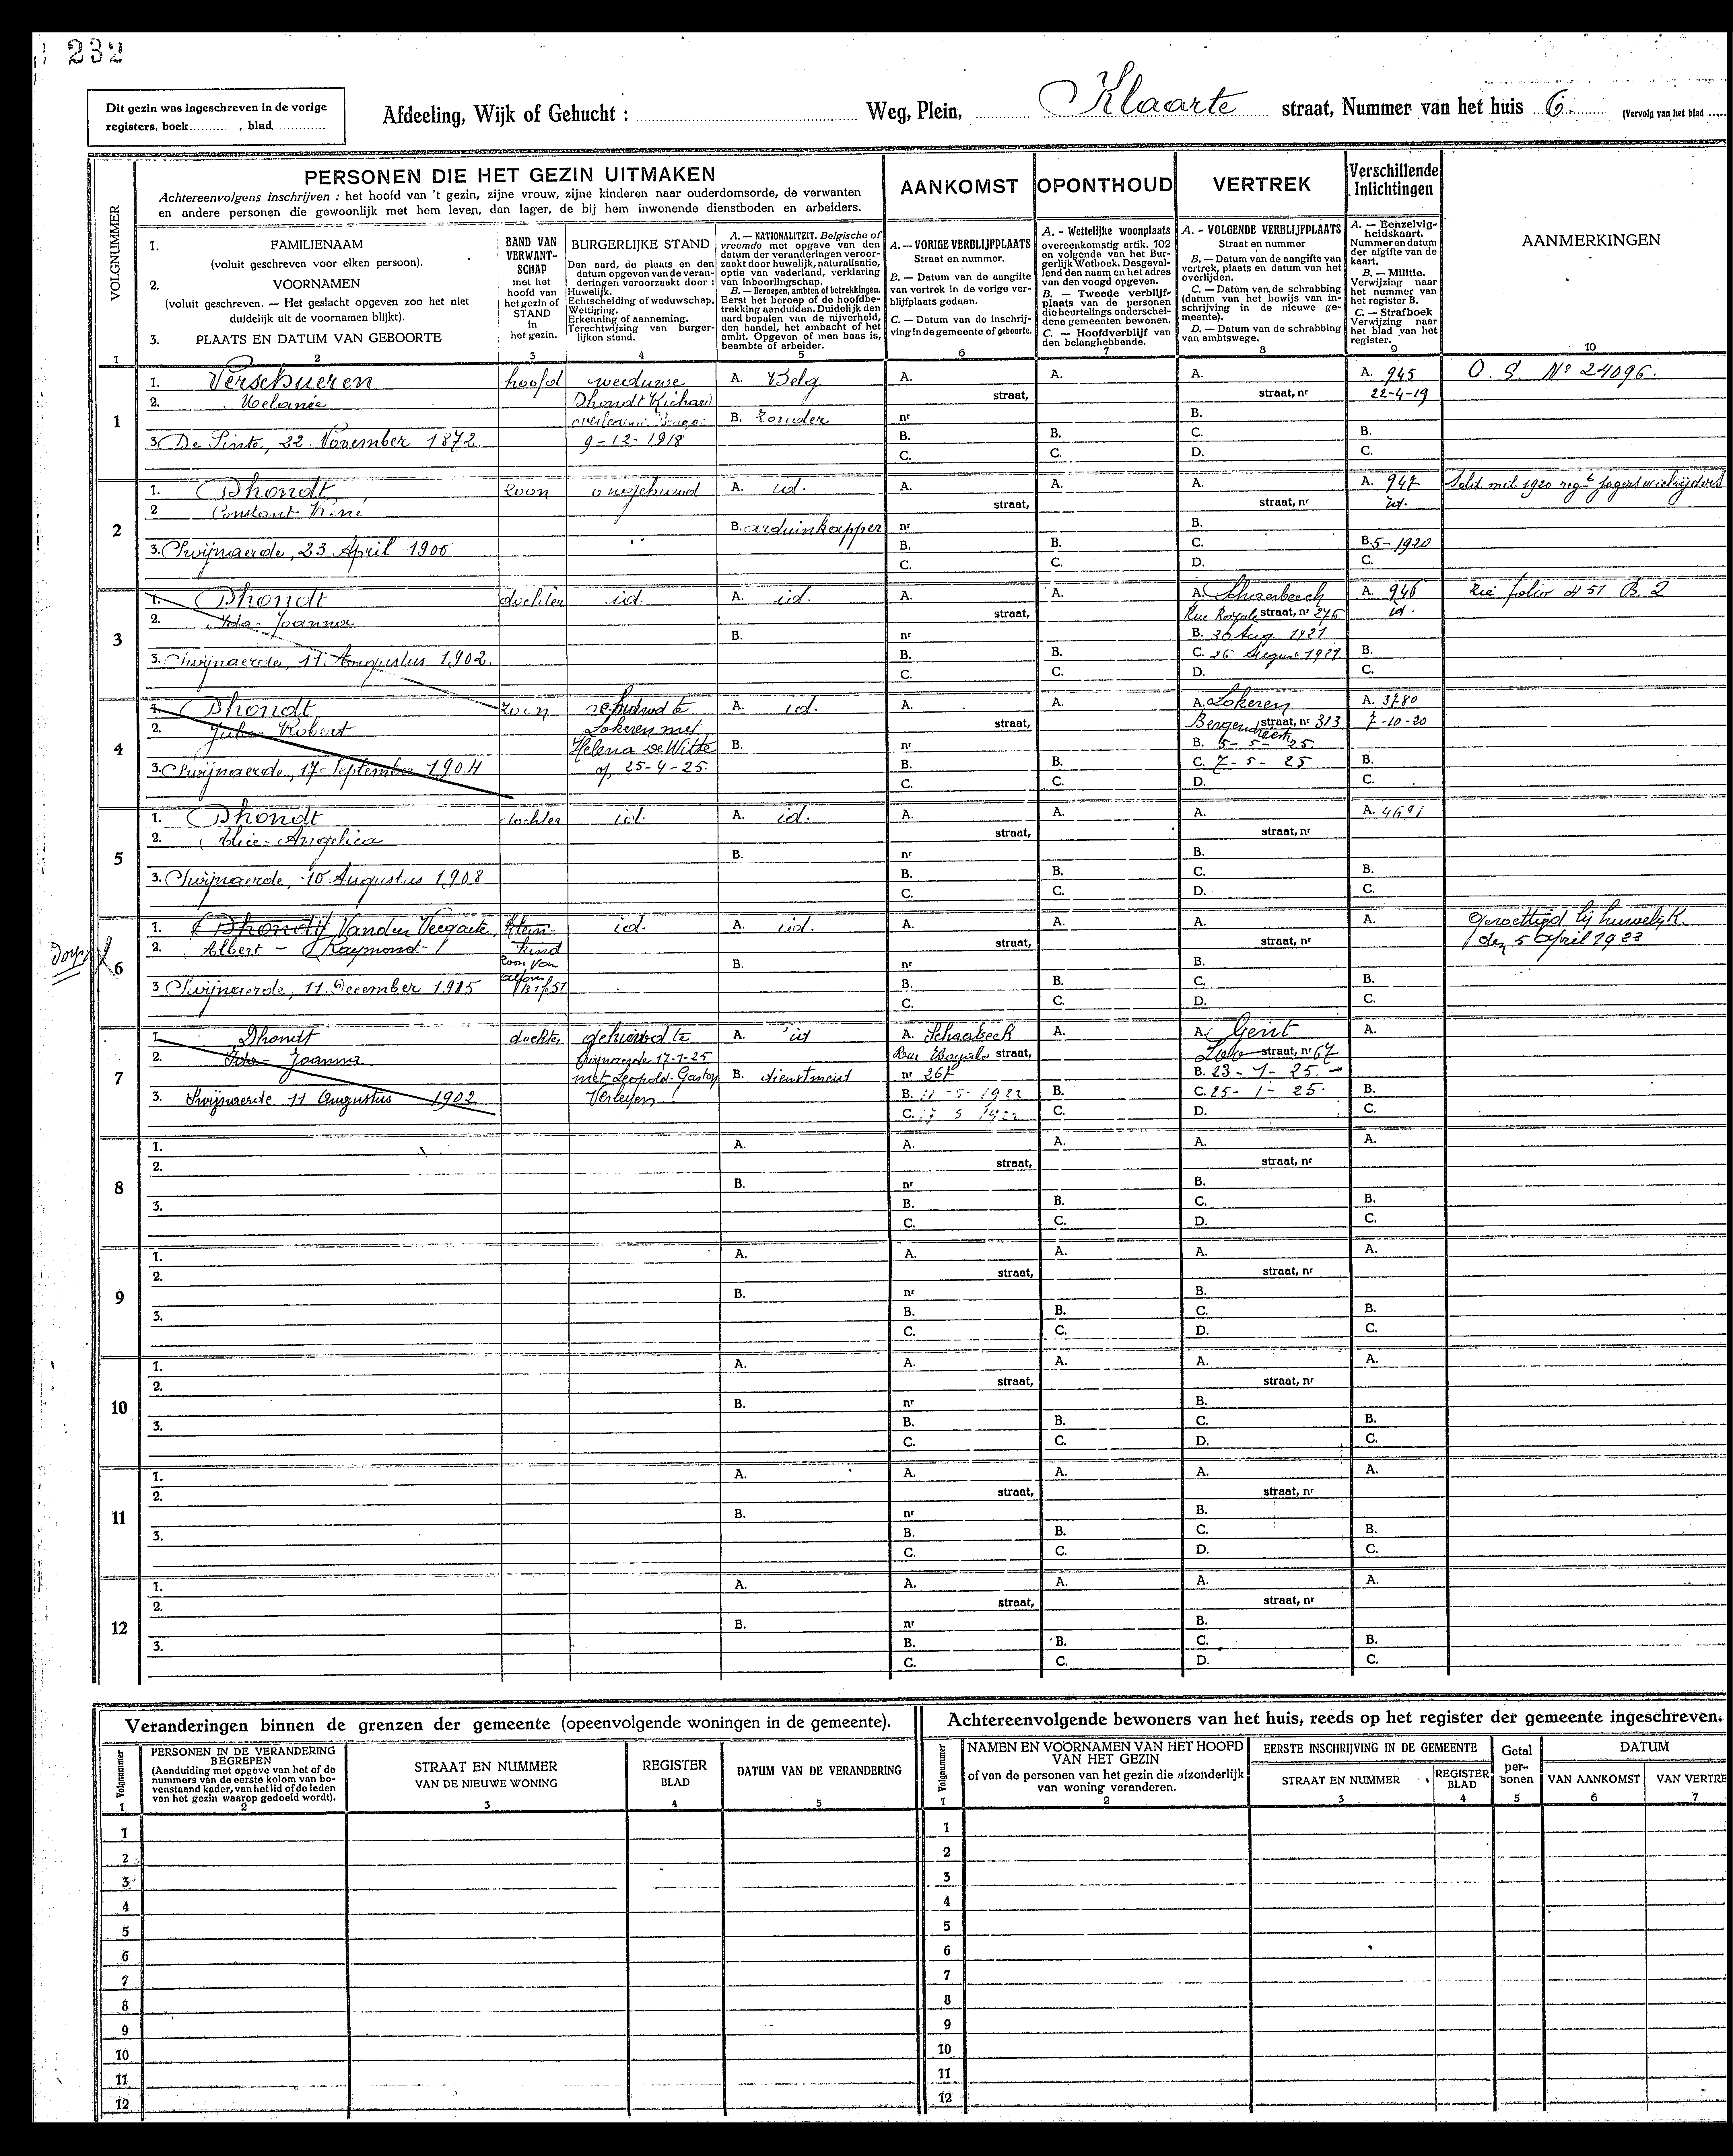 232
Dit gezin was ingeschreven in de vorige
registers, boek , blad
Afdeeling, Wijk of Gehucht : Weg, Plein, Klaarte straat, Nummer van het huis 6. (Vervolg van het blad
PERSONEN DIE HET GEZIN UITMAKEN
Achtereenvolgens inschrijven : het hoofd van 't gezin, zijne vrouw, zijne kinderen naar ouderdomsorde, de verwanten
en andere personen die gewoonlijk met hem leven, dan lager, de bij hem inwonende dienstboden en arbeiders.
AANKOMST
OPONTHOUD
VERTREK
Verschillende
Inlichtingen
VOLGNUMMER
1
1. FAMILIENAAM
(voluit geschreven voor elken persoon).
2. VOORNAMEN
(voluit geschreven. — Het geslacht opgeven zoo het niet
duidelijk uit de voornamen blijkt).
3. PLAATS EN DATUM VAN GEBOORTE
2
BAND VAN
VERWANT-
SCHAP
met het
hoofd van
het gezin of
STAND
in
het gezin.
3
BURGERLIJKE STAND
Den aard, de plaats en den
datum opgeven van de veran-
deringen veroorzaakt door :
Huwelijk.
Echtscheiding of weduwschap.
Wettiging.
Erkenning of aanneming.
Terechtwijzing van burger-
lijken stand.
4
A. — NATIONALITEIT. Belgische of
vreemde met opgave van den
datum der veranderingen veroor-
zaakt door huwelijk, naturalisatie,
optie van vaderland, verklaring
van inboorlingschap.
B. — Beroepen, ambten of betrekkingen.
Eerst het beroep of de hoofdbe-
trekking aanduiden. Duidelijk den
aard bepalen van de nijverheid,
den handel, het ambacht of het
ambt. Opgeven of men baas is,
beambte of arbeider.
5
A. — VORIGE VERBLIJFPLAATS
Straat en nummer.
B. — Datum van de aangifte
van vertrek in de vorige ver-
blijfplaats gedaan.
C. — Datum van de inschrij-
ving in de gemeente of geboorte.
6
A. - Wettelijke woonplaats
overeenkomstig artik. 102
en volgende van het Bur-
gerlijk Wetboek. Desgeval-
lend den naam en het adres
van den voogd opgeven.
B. — Tweede verblijf-
plaats van de personen
die beurtelings onderschei-
dene gemeenten bewonen.
C. — Hoofdverblijf van
den belanghebbende.
7
A. - VOLGENDE VERBLIJFPLAATS
Straat en nummer
B. — Datum van de aangifte van
vertrek, plaats en datum van het
overlijden.
C. — Datum van de schrabbing
(datum van het bewijs van in-
schrijving in de nieuwe ge-
meente).
D. — Datum van de schrabbing
van ambtswege.
8
A. — Eenzelvig-
heidskaart.
Nummer en datum
der afgifte van de
kaart.
B. — Militie.
Verwijzing naar
het nummer van
het register B.
C. — Strafboek
Verwijzing naar
het blad van het
register.
9
AANMERKINGEN
10
1
1. Verschueren hoofd weduwe A. Belg A. A. A. A. 945 O. S. No 24096.
2. Melanie Dhondt Richard straat, straat, nr 22-4-19
B. zonder nr B.
3. De Pinte, 22 November 1872 9-12-1918 B. B. C. B.
C. C. D. C.
2
1. Dhondt zoon ongehuwd A. id. A. A. A. A. 947
2 Constant straat, straat, nr id.
B. arduinkapper nr B.
3. Swijnaerde, 23 April 1900 B. B. C. B. 5-1920
C. C. D. C.
3
1. Dhondt dochter id. A. id. A. A. A. Schaerbeeck A. 946 zie folio 451 B. 2
2. Ida-Joanna straat, Rue Royale straat, nr 276 id.
B. nr B. 30 Aug. 1921
3. Swijnaerde, 11 Augustus 1902. B. B. C. 26 August 1921 B.
C. C. D. C.
4
1. Dhondt zoon gehuwd te A. id. A. A. A. Lokeren A. 3780
2. Jules-Robert Lokeren met straat, straat, nr 313 7-10-20
Helena De Witte B. nr B. 5-5-25.
3. Swijnaerde, 17 September 1904 op 25-4-25. B. B. C. 7-5-25 B.
C. C. D. C.
5
1. Dhondt dochter id. A. id. A. A. A. A. 4691
2. Alice-Angelica straat, straat, nr
B. nr B.
3. Swijnaerde, 10 Augustus 1908 B. B. C. B.
C. C. D. C.
6
1. Dhondt Vanden Veegaete, klein- id. A. id. A. A. A. A. Gewettigd bij huwelijk
2. Albert-Raymond kind straat, straat, nr den 5 April 1923
zoon van B. nr B.
3 Swijnaerde, 11 December 1915 B. B. C. B.
C. C. D. C.
7
1. Dhondt dochter gehuwd te A. id A. Schaerbeek A. A. Gent A.
2. Ida-Joanna Swijnaerde 17-1-25 straat, straat, nr 67
met Leopold-Gaston B. dienstmeid nr 267 B. 23-1-25.
3. Swijnaerde 11 Augustus 1902 Verleyen B. 11-5-1922 B. C. 25-1-25. B.
C. 17 5 1922 C. D. C.
8
1. A. A. A. A. A.
2. straat, straat, nr
B. nr B.
3. B. B. C. B.
C. C. D. C.
9
1. A. A. A. A. A.
2. straat, straat, nr
B. nr B.
3. B. B. C. B.
C. C. D. C.
10
1. A. A. A. A. A.
2. straat, straat, nr
B. nr B.
3. B. B. C. B.
C. C. D. C.
11
1. A. A. A. A. A.
2. straat, straat, nr
B. nr B.
3. B. B. C. B.
C. C. D. C.
12
1. A. A. A. A. A.
2. straat, straat, nr
B. nr B.
3. B. B. C. B.
C. C. D. C.
Veranderingen binnen de grenzen der gemeente (opeenvolgende woningen in de gemeente).
Volgnummer
1
PERSONEN IN DE VERANDERING
BEGREPEN
(Aanduiding met opgave van het of de
nummers van de eerste kolom van bo-
venstaand kader, van het lid of de leden
van het gezin waarop gedoeld wordt).
2
STRAAT EN NUMMER
VAN DE NIEUWE WONING
3
REGISTER
BLAD
4
DATUM VAN DE VERANDERING
5
1
2
3
4
5
6
7
8
9
10
11
12
Achtereenvolgende bewoners van het huis, reeds op het register der gemeente ingeschreven.
Volgnummer
1
NAMEN EN VOORNAMEN VAN HET HOOFD
VAN HET GEZIN
of van de personen van het gezin die afzonderlijk
van woning veranderen.
2
EERSTE INSCHRIJVING IN DE GEMEENTE
STRAAT EN NUMMER
3
REGISTER
BLAD
4
Getal
per-
sonen
5
DATUM
VAN AANKOMST
6
VAN VERTRE
7
1
2
3
4
5
6
7
8
9
10
11
12